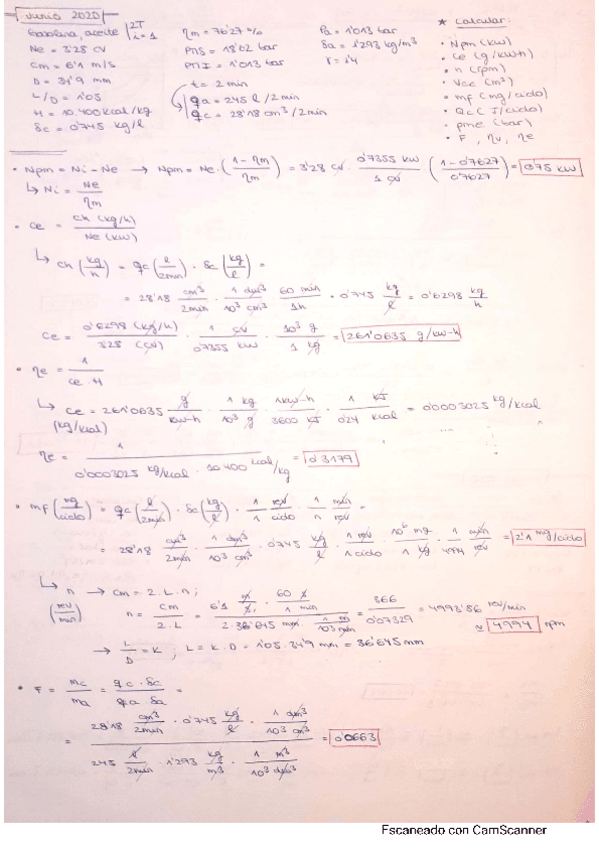 Junio 2020
Gasolina, aceite 2T i=1
Ne = 3'28 CV
cm = 6'1 m/s
D = 34'9 mm
L/D = 1'05
H = 10.400 kcal/kg
δc = 0'745 kg/l
ηm = 76'27 %
PMS = 18'62 bar
PMI = 1'013 bar
t = 2 min
qa = 245 l/2min
qc = 28'18 cm³/2min
Pa = 1'013 bar
δa = 1'293 kg/m³
γ = 1'4
★ Calcular:
• Npm (kW)
• Ce (g/kWh)
• n (rpm)
• Vcc (m³)
• mf (mg/ciclo)
• Qc (J/ciclo)
• pme (bar)
• F, ηv, ηe
• Npm = Ni - Ne → Npm = Ne · (1 - ηm / ηm) = 3'28 CV · 0'7355 kW / 1 CV (1 - 0'7627 / 0'7627) = 0'75 kW
↳ Ni = Ne / ηm
• Ce = Ch (kg/h) / Ne (kW)
↳ Ch (kg/h) = qc (l/2min) · δc (kg/l) =
= 28'18 cm³/2min · 1 dm³/10³ cm³ · 60 min/1h · 0'745 kg/l = 0'6298 kg/h
Ce = 0'6298 (kg/h) / 3'28 (CV) · 1 CV / 0'7355 kW · 10³ g / 1 kg = 261'0635 g/kW-h
• ηe = 1 / Ce · H
↳ Ce = 261'0635 g/kW-h · 1 kg/10³ g · 1kW-h/3600 kJ · 1 kJ/0'24 kcal = 0'0003025 kg/kcal
(kg/kcal)
ηe = 1 / 0'0003025 kg/kcal · 10400 kcal/kg = 0'3179
• mf (mg/ciclo) = qc (l/2min) · δc (kg/l) · 1 rev/1 ciclo · 1 min/n rev =
= 28'18 cm³/2min · 1 dm³/10³ cm³ · 0'745 kg/l · 1 rev/1 ciclo · 10⁶ mg/1 kg · 1 min/4994 rev = 2'1 mg/ciclo
↳ n → cm = 2 · L · n ;
(rev/min) n = cm / 2 · L = 6'1 m/s · 60 s/1 min / 2 · 36'645 mm · 1 m/10³ mm = 366 / 0'07329 = 4993'86 rev/min ≈ 4994 rpm
→ L/D = K , L = K · D = 1'05 · 34'9 mm = 36'645 mm
• F = mc / ma = qc · δc / qa · δa =
= 28'18 cm³/2min · 0'745 kg/l · 1 dm³/10³ cm³ / 245 l/2min · 1'293 kg/m³ · 1 m³/10³ dm³ = 0'0663
Escaneado con CamScanner